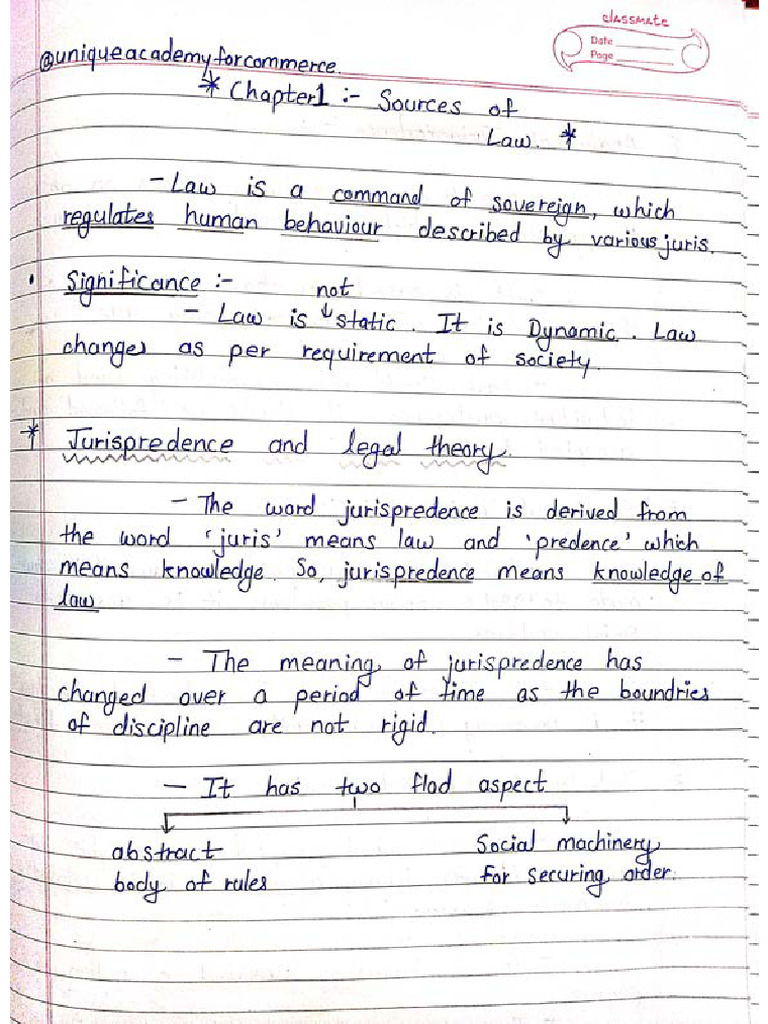 classmate
Date
Page
@uniqueacademyforcommerce.
* Chapter1 :- Sources of
Law. *
- Law is a command of sovereign, which
regulates human behaviour described by various juris.
• Significance :-
not
- Law is ↓ static. It is Dynamic. Law
changes as per requirement of society.
* Jurispredence and legal theory.
- The word jurispredence is derived from
the word 'juris' means law and 'predence' which
means knowledge. So, jurispredence means knowledge of
law
- The meaning of jurispredence has
changed over a period of time as the boundries
of discipline are not rigid.
- It has two flod aspect
abstract Social machinery
body of rules for securing order.